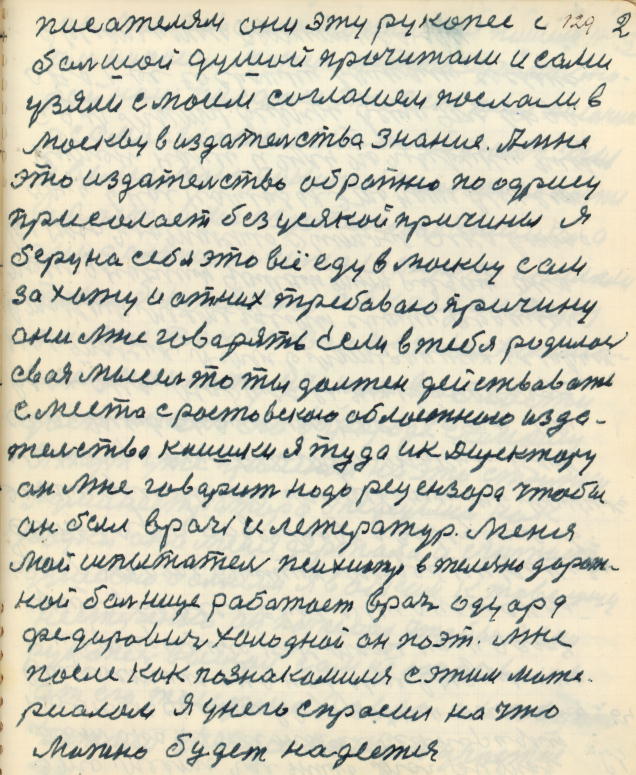 писателям они эту рукопес с 129 2
балшой душой прочитали и сами
узяли с моим согласием послали в
москву в издателства Знание. Амне
это издателство обратно по одрису
присолает без усякой причины я
беру на себя это всё еду в москву сам
за хожу и отних требаваю причину
они мне говарять если в тебя родилас
свая мысел то ты должен действавать
с места с ростовского областного изда-
телство книшки я туда и к директору
он мне говарит надо рецензора чтобы
он был врач и летератур. Меня
мой испытател психиатр в желязно дорож-
ной болнице работает врач одуард
федарович холодной он поэт. Мне
после как познакомился с этим мате-
риалом я унего спросил на что
можно будет надеется